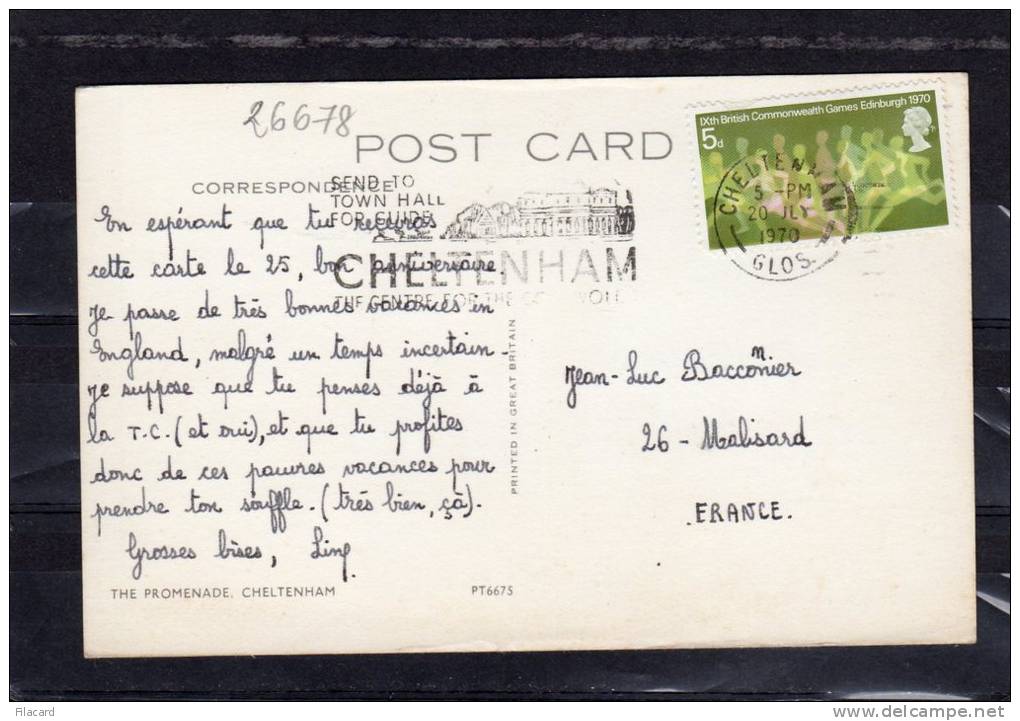 26678
POST CARD
IXth British Commonwealth Games Edinburgh 1970
5d
CHELTENHAM
5 - PM
20 JLY
1970
GLOS.
CORRESPONDENCE
SEND TO
TOWN HALL
FOR GUIDE
CHELTENHAM
THE CENTRE FOR THE
En espérant que tu recevras
cette carte le 25, bon anniversaire.
Je passe de très bonnes vacances in
England, malgré un temps incertain.
Je suppose que tu penses déjà à
la T.C. (et oui), et que tu profites
donc de ces pauvres vacances pour
prendre ton souffle. (très bien, çà).
Grosses bises,
PRINTED IN GREAT BRITAIN
Jean-Luc Bacconnier
26 - Malisard
FRANCE.
THE PROMENADE, CHELTENHAM
PT6675
Filacard
delcampe.net